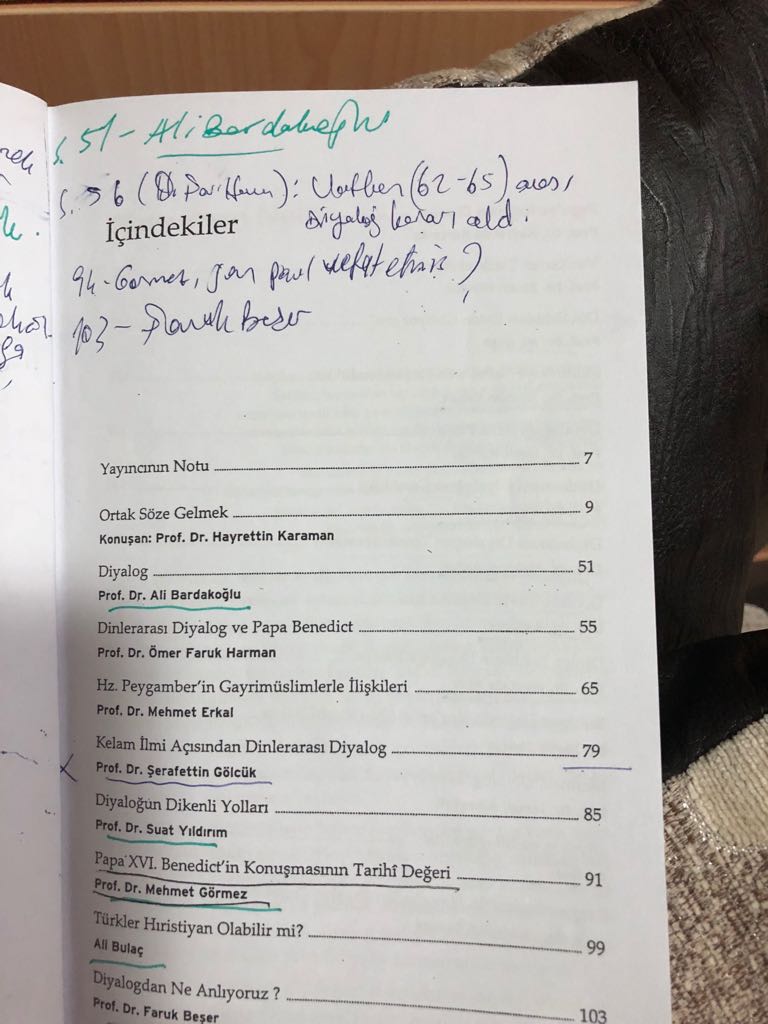 S. 51- Ali Bardakoğlu
S. 56 ( ): (62-65) arası
Diyaloğ kararı aldı.
İçindekiler
94- Görmez, Jan Paul vefat etmiş?
103- Faruk Beşer
Yayıncının Notu 7
Ortak Söze Gelmek 9
Konuşan: Prof. Dr. Hayrettin Karaman
Diyalog 51
Prof. Dr. Ali Bardakoğlu
Dinlerarası Diyalog ve Papa Benedict 55
Prof. Dr. Ömer Faruk Harman
Hz. Peygamber'in Gayrimüslimlerle İlişkileri 65
Prof. Dr. Mehmet Erkal
Kelam İlmi Açısından Dinlerarası Diyalog 79
Prof. Dr. Şerafettin Gölcük
Diyaloğun Dikenli Yolları 85
Prof. Dr. Suat Yıldırım
Papa XVI. Benedict'in Konuşmasının Tarihî Değeri 91
Prof. Dr. Mehmet Görmez
Türkler Hıristiyan Olabilir mi? 99
Ali Bulaç
Diyalogdan Ne Anlıyoruz ? 103
Prof. Dr. Faruk Beşer